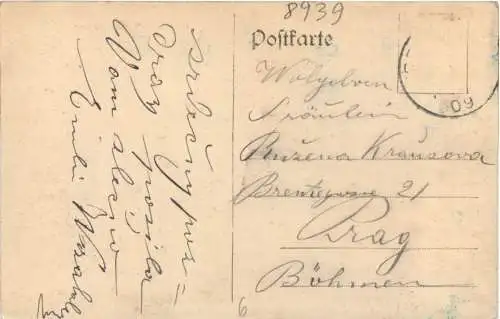 8939
Postkarte
09
Wolgeboren
Fräulein
Bužena Krausova
Brentegasse 21
Prag
Böhmen
srdečný poz=
drav posila
Vam slecno
Emil
6